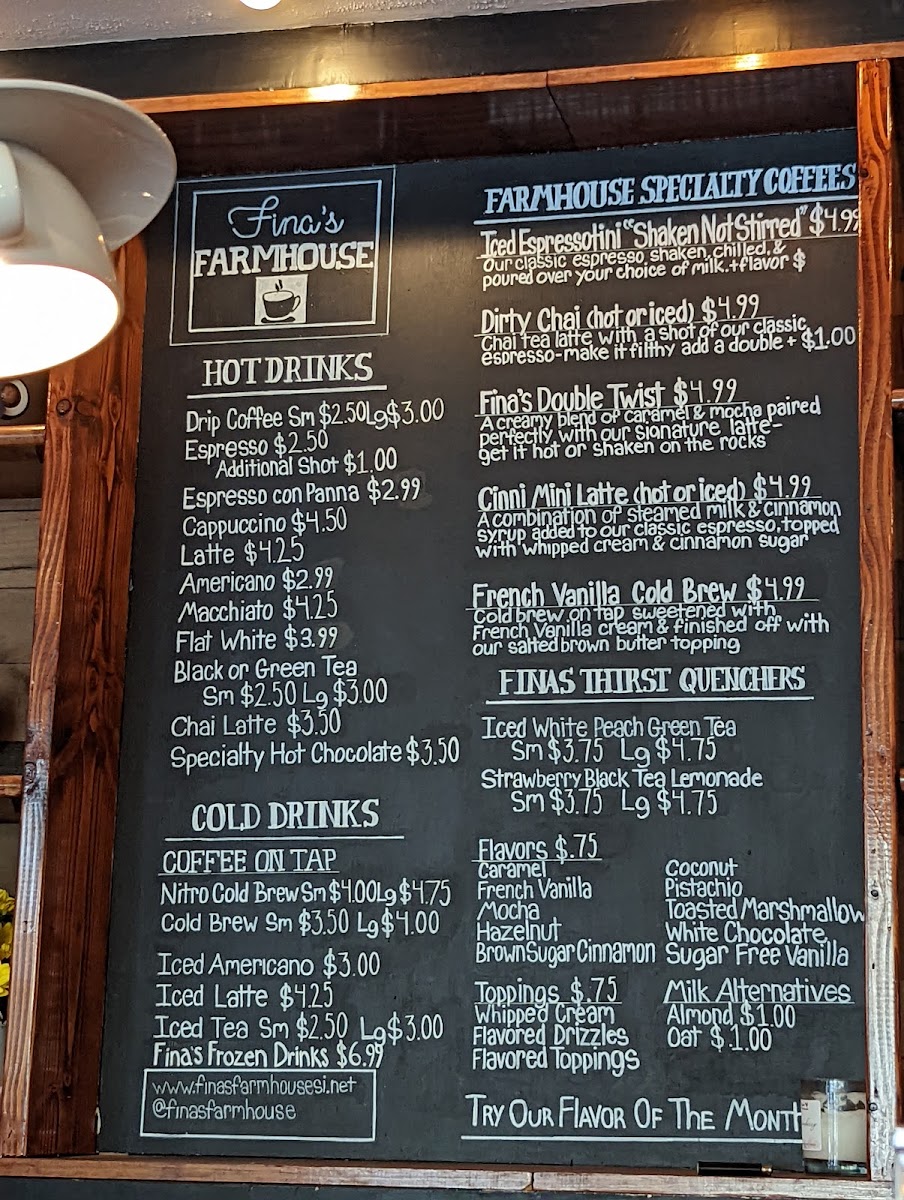 Fina's
FARMHOUSE
HOT DRINKS
Drip Coffee Sm $2.50 Lg $3.00
Espresso $2.50
Additional Shot $1.00
Espresso con Panna $2.99
Cappuccino $4.50
Latte $4.25
Americano $2.99
Macchiato $4.25
Flat White $3.99
Black or Green Tea
Sm $2.50 Lg $3.00
Chai Latte $3.50
Specialty Hot Chocolate $3.50
COLD DRINKS
COFFEE ON TAP
Nitro Cold Brew Sm $4.00 Lg $4.75
Cold Brew Sm $3.50 Lg $4.00
Iced Americano $3.00
Iced Latte $4.25
Iced Tea Sm $2.50 Lg $3.00
Fina's Frozen Drinks $6.99
www.finasfarmhousesi.net
@finasfarmhouse
FARMHOUSE SPECIALTY COFFEES
Iced Espressotini "Shaken Not Stirred" $4.99
our classic espresso, shaken, chilled, &
poured over your choice of milk. + flavor $
Dirty Chai (hot or iced) $4.99
Chai tea latte with a shot of our classic
espresso - make it filthy add a double + $1.00
Fina's Double Twist $4.99
A creamy blend of caramel & mocha paired
perfectly with our signature latte -
get it hot or shaken on the rocks
Cinni Mini Latte (hot or iced) $4.99
A combination of steamed milk & cinnamon
syrup added to our classic espresso, topped
with whipped cream & cinnamon sugar
French Vanilla Cold Brew $4.99
Cold brew on tap sweetened with
French Vanilla cream & finished off with
our salted brown butter topping
FINAS THIRST QUENCHERS
Iced White Peach Green Tea
Sm $3.75 Lg $4.75
Strawberry Black Tea Lemonade
Sm $3.75 Lg $4.75
Flavors $.75
Caramel
French Vanilla
Mocha
Hazelnut
Brown Sugar Cinnamon
Coconut
Pistachio
Toasted Marshmallow
White Chocolate
Sugar Free Vanilla
Toppings $.75
Whipped Cream
Flavored Drizzles
Flavored Toppings
Milk Alternatives
Almond $1.00
Oat $1.00
TRY OUR FLAVOR OF THE MONTH